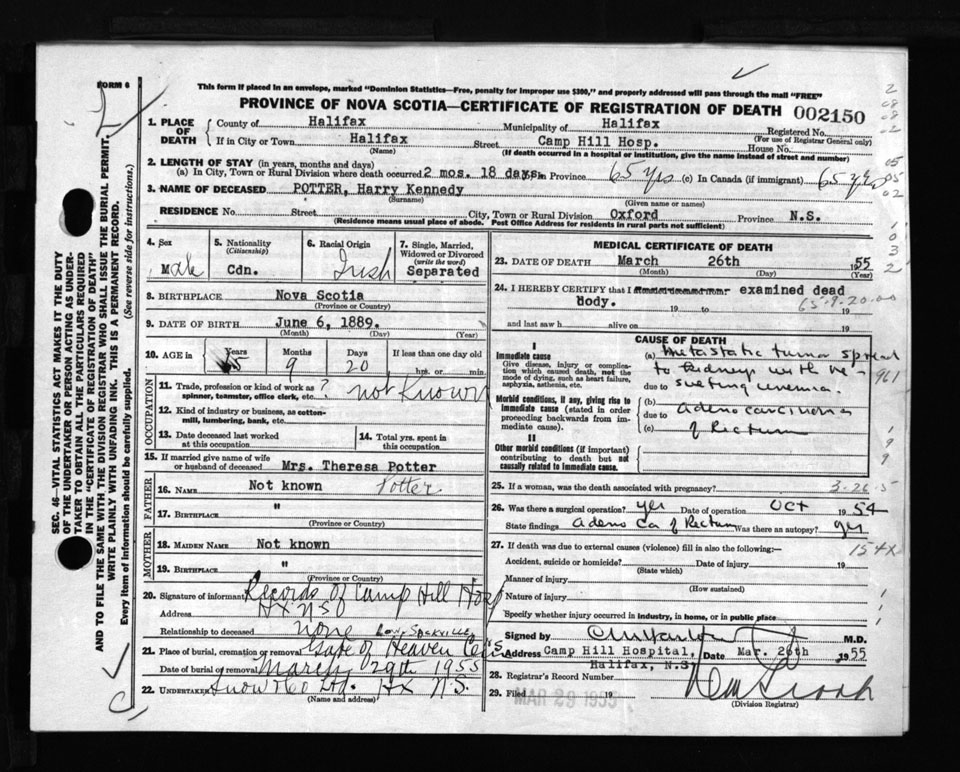 FORM 6
This form if placed in an envelope, marked "Dominion Statistics—Free, penalty for improper use $300," and properly addressed will pass through the mail "FREE"
PROVINCE OF NOVA SCOTIA—CERTIFICATE OF REGISTRATION OF DEATH 002150
1. PLACE OF DEATH
County of Halifax Municipality of Halifax Registered No.
(For use of Registrar General only)
If in City or Town Halifax Street Camp Hill Hosp. House No.
(Name) (If death occurred in a hospital or institution, give the name instead of street and number)
2. LENGTH OF STAY (in years, months and days)
(a) In City, Town or Rural Division where death occurred 2 mos. 18 days. in Province 65 yrs (c) In Canada (if immigrant) 65 yrs
3. NAME OF DECEASED POTTER, Harry Kennedy
(Surname) (Given name or names)
RESIDENCE No. Street City, Town or Rural Division Oxford Province N.S.
(Residence means usual place of abode. Post Office Address for residents in rural parts not sufficient)
4. Sex
Male
5. Nationality
(Citizenship)
Cdn.
6. Racial Origin
Irish
7. Single, Married, Widowed or Divorced
(write the word)
Separated
8. BIRTHPLACE Nova Scotia
(Province or Country)
9. DATE OF BIRTH June 6, 1889.
(Month) (Day) (Year)
10. AGE in
Years Months Days If less than one day old
65 9 20 hrs. or min.
OCCUPATION
11. Trade, profession or kind of work as spinner, teamster, office clerk, etc. ? not Known
12. Kind of industry or business, as cotton-mill, lumbering, bank, etc.
13. Date deceased last worked at this occupation
14. Total yrs. spent in this occupation
15. If married give name of wife or husband of deceased Mrs. Theresa Potter
FATHER
16. NAME Not known Potter
17. BIRTHPLACE "
(Province or Country)
MOTHER
18. MAIDEN NAME Not known
19. BIRTHPLACE "
(Province or Country)
20. Signature of informant Records of Camp Hill Hosp
Address Hx N S
Relationship to deceased none Sackville
21. Place of burial, cremation or removal Gate of Heaven N.S.
Date of burial or removal March 29th 1955
22. UNDERTAKER Snow & Co Ltd. Hx N.S.
(Name and address)
MEDICAL CERTIFICATE OF DEATH
23. DATE OF DEATH March 26th 1955
(Month) (Day) (Year)
24. I HEREBY CERTIFY that I attended deceased from examined dead
Body. 19 to 19
65-9-20-00
and last saw h alive on 19
CAUSE OF DEATH
I
Immediate cause
Give disease, injury or complication which caused death, not the mode of dying, such as heart failure, asphyxia, asthenia, etc.
(a) Metastatic tumor spread
to kidneys with re-
due to sulting uremia.
961
Morbid conditions, if any, giving rise to immediate cause (stated in order proceeding backwards from immediate cause).
(b)
due to adenocarcinoma
(c) of Rectum
II
Other morbid conditions (if important) contributing to death but not causally related to immediate cause.
25. If a woman, was the death associated with pregnancy? 3-26-5
26. Was there a surgical operation? yes Date of operation Oct 1954
State findings adeno ca of Rectum Was there an autopsy? yes
27. If death was due to external causes (violence) fill in also the following:—
154X
Accident, suicide or homicide? Date of injury 19
(State which)
Manner of injury
(How sustained)
Nature of injury
Specify whether injury occurred in industry, in home, or in public place
Signed by M.D.
Address Camp Hill Hospital, Halifax, N.S. Date Mar. 26th 1955
28. Registrar's Record Number
29. Filed 19
MAR 29 1955
(Division Registrar)
SEC. 46—VITAL STATISTICS ACT MAKES IT THE DUTY
OF THE UNDERTAKER OR PERSON ACTING AS UNDER-
TAKER TO OBTAIN ALL THE PARTICULARS REQUIRED
IN THE "CERTIFICATE OF REGISTRATION OF DEATH"
AND TO FILE THE SAME WITH THE DIVISION REGISTRAR WHO SHALL ISSUE THE BURIAL PERMIT.
WRITE PLAINLY WITH UNFADING INK. THIS IS A PERMANENT RECORD.
Every item of information should be carefully supplied. (See reverse side for instructions.)